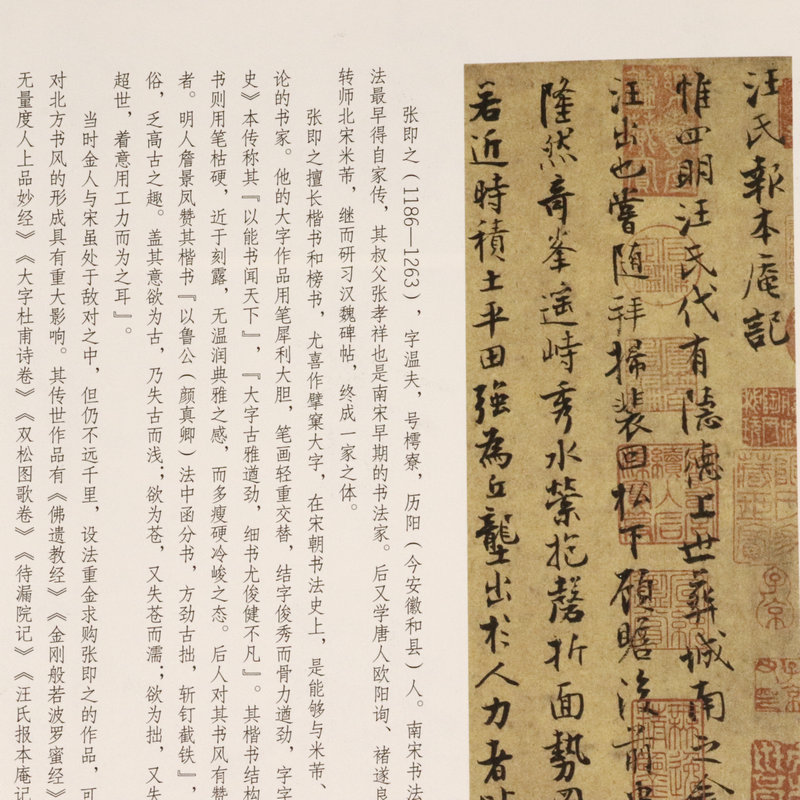 汪氏報本庵記
惟四明汪氏代有隱德上世葬城南之
汪出也嘗随拜掃裴回松下顧瞻後前
隆然奇峯遥峙秀水縈抱磬折面勢
若近時積土平田強為丘壟出於人力者
张即之(1186—1263),字温夫,号樗寮,历阳(今安徽和县)人。南宋书法
法最早得自家传,其叔父张孝祥也是南宋早期的书法家。后又学唐人欧阳询、褚遂良
转师北宋米芾,继而研习汉魏碑帖,终成一家之体。
张即之擅长楷书和榜书,尤喜作擘窠大字,在宋朝书法史上,是能够与米芾、
论的书家。他的大字作品用笔犀利大胆,笔画轻重交替,结字俊秀而骨力遒劲,字字
史》本传称其『以能书闻天下』,『大字古雅遒劲,细书尤俊健不凡』。其楷书结构
书则用笔枯硬,近于刻露,无温润典雅之感,而多瘦硬冷峻之态。后人对其书风有赞
者。明人詹景凤赞其楷书『以鲁公(颜真卿)法中函分书,方劲古拙,斩钉截铁』,
俗,乏高古之趣。盖其意欲为古,乃失古而浅;欲为苍,又失苍而濡;欲为拙,又失
超世,着意用工力而为之耳』。
当时金人与宋虽处于敌对之中,但仍不远千里,设法重金求购张即之的作品,可
对北方书风的形成具有重大影响。其传世作品有《佛遗教经》《金刚般若波罗蜜经》
无量度人上品妙经》《大字杜甫诗卷》《双松图歌卷》《待漏院记》《汪氏报本庵记